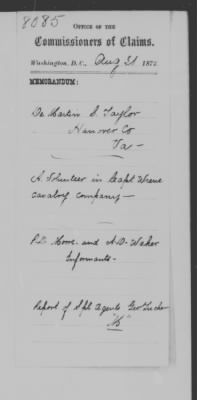 8085
OFFICE OF THE
Commissioners of Claims.
Washington, D.C., Aug 31. 1872
MEMORANDUM:
De Martin S. Taylor
Hanover Co
Va-
A Volunteer in Capt
cavalry company-
P.D. Howe. and A.D.
Informants-
Report of Spl Agents Geo Tucker